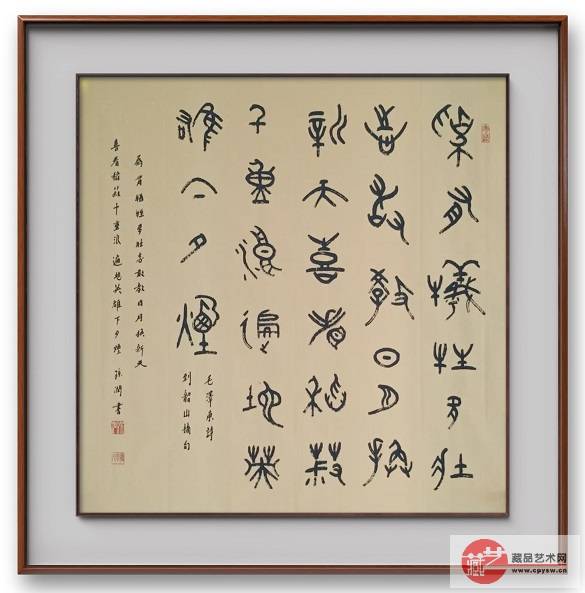 為有犧牲多壯
志敢教日月換
新天喜看稻菽
千重浪遍地英
雄下夕煙
毛澤東詩
到韶山摘句
為有犧牲多壯志敢教日月換新天
喜看稻菽千重浪遍地英雄下夕煙 書
藏艺
藏品艺术网
www.cpysw.cn